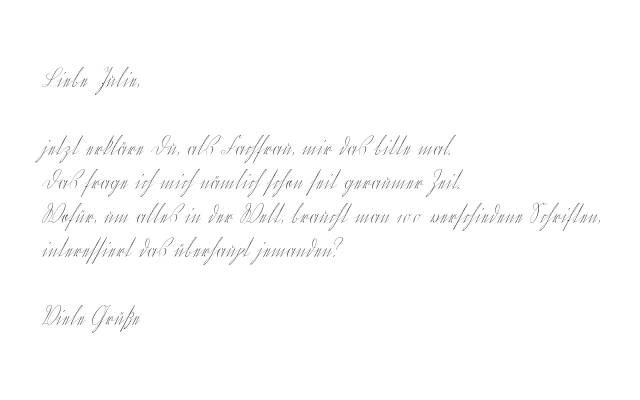 Liebe Julia,
jetzt erkläre Du, als Fachfrau, mir das bitte mal.
Das frage ich mich nämlich schon seit geraumer Zeit.
Wofür, um alles in der Welt, braucht man 100 verschiedene Schriften,
interessiert das überhaupt jemanden?
Viele Grüße